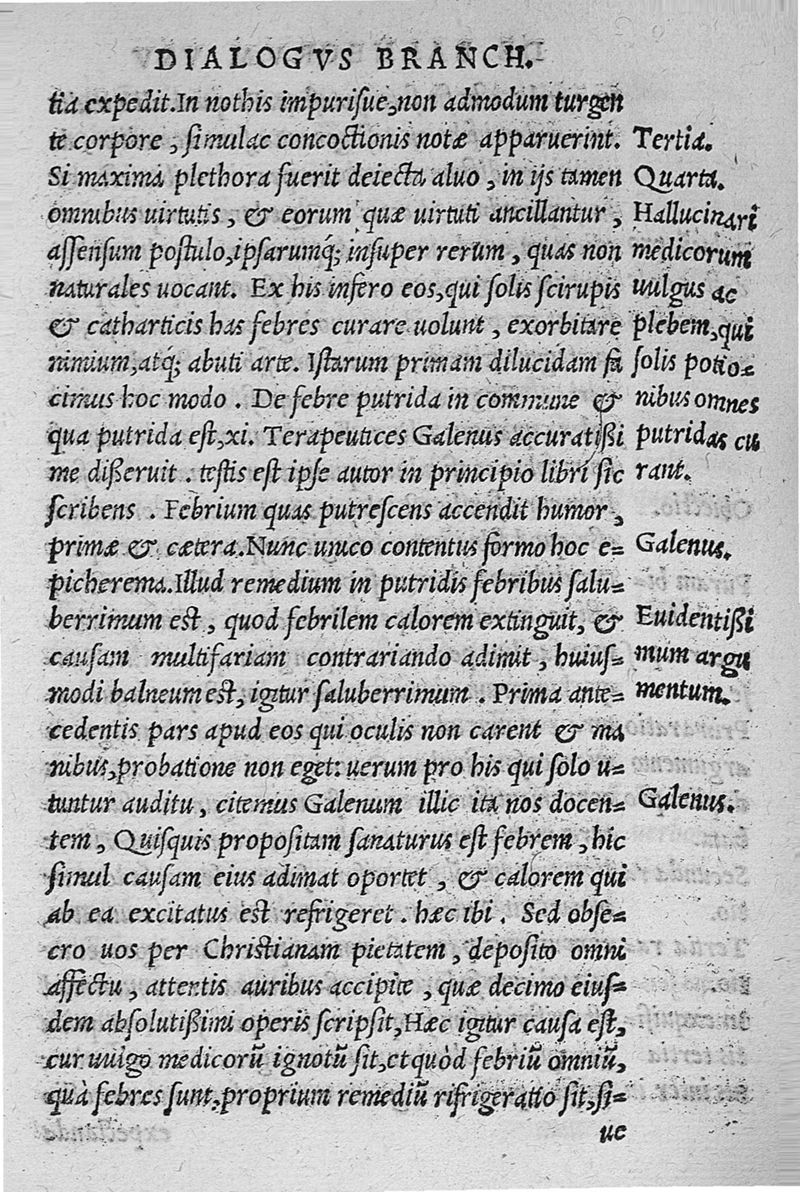 DIALOGVS BRANCH.
tia expedit. In nothis impurisue, non admodum turgen
te corpore, simulac concoctionis notæ apparuerint.
Tertia.
Si maxima plethora fuerit deiecta aluo, in ijs tamen
Quarta.
omnibus uirtutis, & eorum quæ uirtuti ancillantur,
Hallucinari
assensum postulo, ipsarumq; insuper rerum, quas non
medicorum
naturales uocant. Ex his infero eos, qui solis scirupis
uulgus ac
& catharticis has febres curare uolunt, exorbitare
plebem, qui
nimium, atq; abuti arte. Istarum primam dilucidam fa
solis potio=
cimus hoc modo. De febre putrida in commune &
nibus omnes
qua putrida est, xi. Terapeutices Galenus accuratißi
putridas cu
me dißeruit. testis est ipse autor in principio libri sic
rant.
scribens. Febrium quas putrescens accendit humor,
primæ & cætera. Nunc unico contentus formo hoc e=
Galenus.
picherema. Illud remedium in putridis febribus salu=
berrimum est, quod febrilem calorem extinguit, &
Euidentißi
causam multifariam contrariando adimit, huius=
mum argu
modi balneum est, igitur saluberrimum. Prima ante=
mentum.
cedentis pars apud eos qui oculis non carent & ma
nibus, probatione non eget: uerum pro his qui solo u=
tuntur auditu, citemus Galenum illic ita nos docen=
Galenus.
tem, Quisquis propositam sanaturus est febrem, hic
simul causam eius adimat oportet, & calorem qui
ab ea excitatus est refrigeret. hæc ibi. Sed obse=
cro uos per Christianam pietatem, deposito omni
affectu, attentis auribus accipite, quæ decimo eius=
dem absolutißimi operis scripsit, Hæc igitur causa est,
cur uulgo medicorũ ignotũ sit, et quòd febriũ omniũ,
quà febres sunt, proprium remediũ rifrigeratio sit, si=
ue